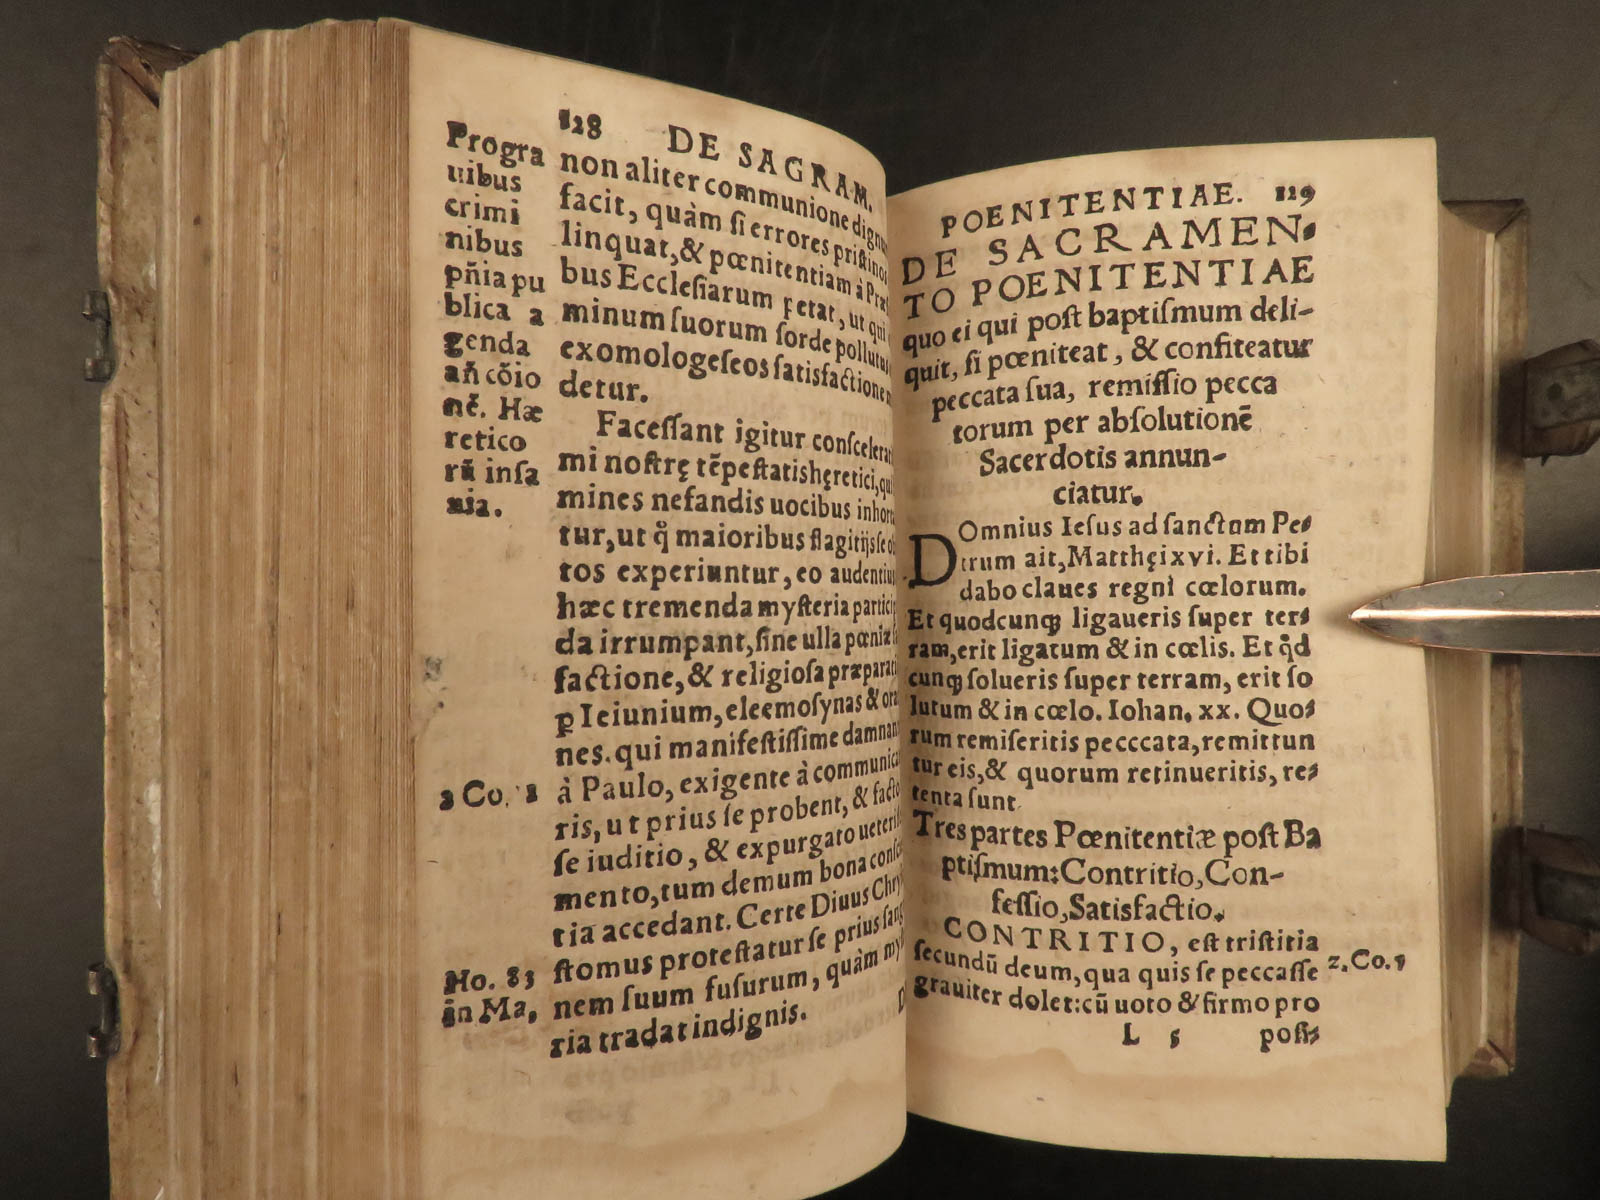 128 DE SAGRAM.
Progra
uibus
crimi
nibus
pñia pu
blica a
genda
añ cõio
nẽ. Hæ
retico
rũ inſa
nia.
non aliter communione dign
facit, quàm ſi errores priſtinos
linquat, & pœnitentiam à Præ
bus Eccleſiarum petat, ut qui
minum ſuorum ſorde pollutus
exomologeſeos ſatisfactionem
detur.
Faceſſant igitur conſcelerati
mi noſtrę tẽpeſtatis hęretici, qui
mines nefandis uocibus inhor
tur, ut q̊ maioribus flagitijs ſe ob
tos experiuntur, eo audentius
hæc tremenda myſteria partici
da irrumpant, ſine ulla pœniæ
factione, & religioſa præparati
ꝑ Ieiunium, eleemoſynas & ora
nes. qui manifeſtiſſime damnan
2 Co.
à Paulo, exigente à communica
ris, ut prius ſe probent, & facto
ſe iuditio, & expurgato ueteri
mento, tum demum bona conſc
tia accedant. Certe Diuus Chry
ſtomus proteſtatur ſe prius ſang
nem ſuum fuſurum, quàm myſ
ria tradat indignis.
Ho. 83
in Ma.
POENITENTIAE. 129
DE SACRAMEN-
TO POENITENTIAE
quo ei qui poſt baptiſmum deli-
quit, ſi pœniteat, & confiteatur
peccata ſua, remiſſio pecca
torum per abſolutionẽ
Sacerdotis annun-
ciatur.
DOmnius Ieſus ad ſanctum Pe-
trum ait, Matthęi xvi. Et tibi
dabo claues regni cœlorum.
Et quodcunqꝫ ligaueris ſuper ter-
ram, erit ligatum & in cœlis. Et qd̊
cunqꝫ ſolueris ſuper terram, erit ſo
lutum & in cœlo. Iohan. xx. Quo-
rum remiſeritis pecccata, remittun
tur eis, & quorum retinueritis, re-
tenta ſunt.
Tres partes Pœnitentiæ poſt Ba
ptiſmum: Contritio, Con-
feſſio, Satisfactio.
CONTRITIO, eſt triſtitia
ſecundũ deum, qua quis ſe peccaſſe
2. Co. 7
grauiter dolet: cũ uoto & firmo pro
L 5 poſi-